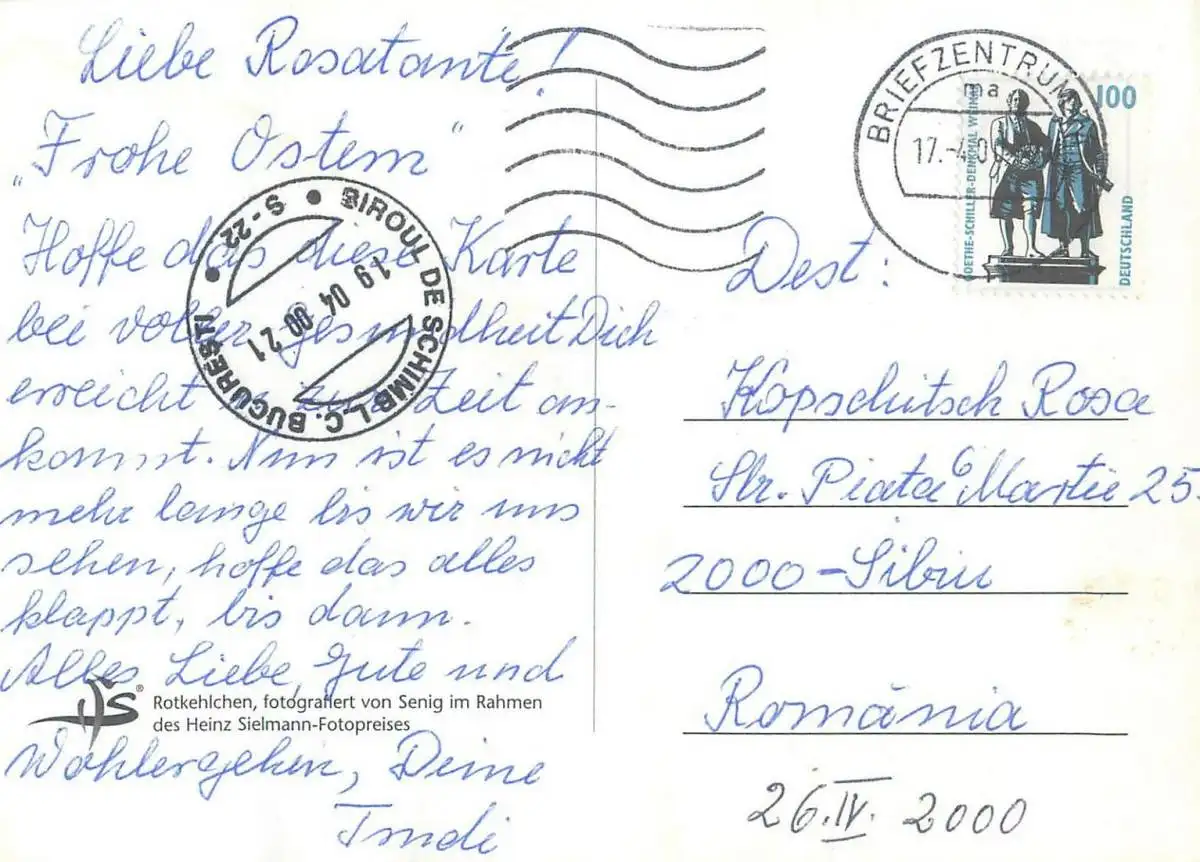 Liebe Rosatante!
„Frohe Ostern“
Hoffe das diese Karte
bei voller gesundheit Dich
erreicht u. zur Zeit an-
kommt. Nun ist es nicht
mehr lange bis wir uns
sehen, hoffe das alles
klappt, bis dann.
Alles Liebe, Gute und
Wohlergehen, Deine
Trudi
Rotkehlchen, fotografiert von Senig im Rahmen
des Heinz Sielmann-Fotopreises
BIROUL DE SCHIMB L.C. BUCUREȘTI
S-22
19 04 00 21
BRIEFZENTRUM
ma
17.-4.0
100
GOETHE-SCHILLER-DENKMAL WEIMAR
DEUTSCHLAND
Dest:
Kopschitsch Rosa
Str. Piata 6 Martie 25
2000-Sibiu
România
26.IV. 2000